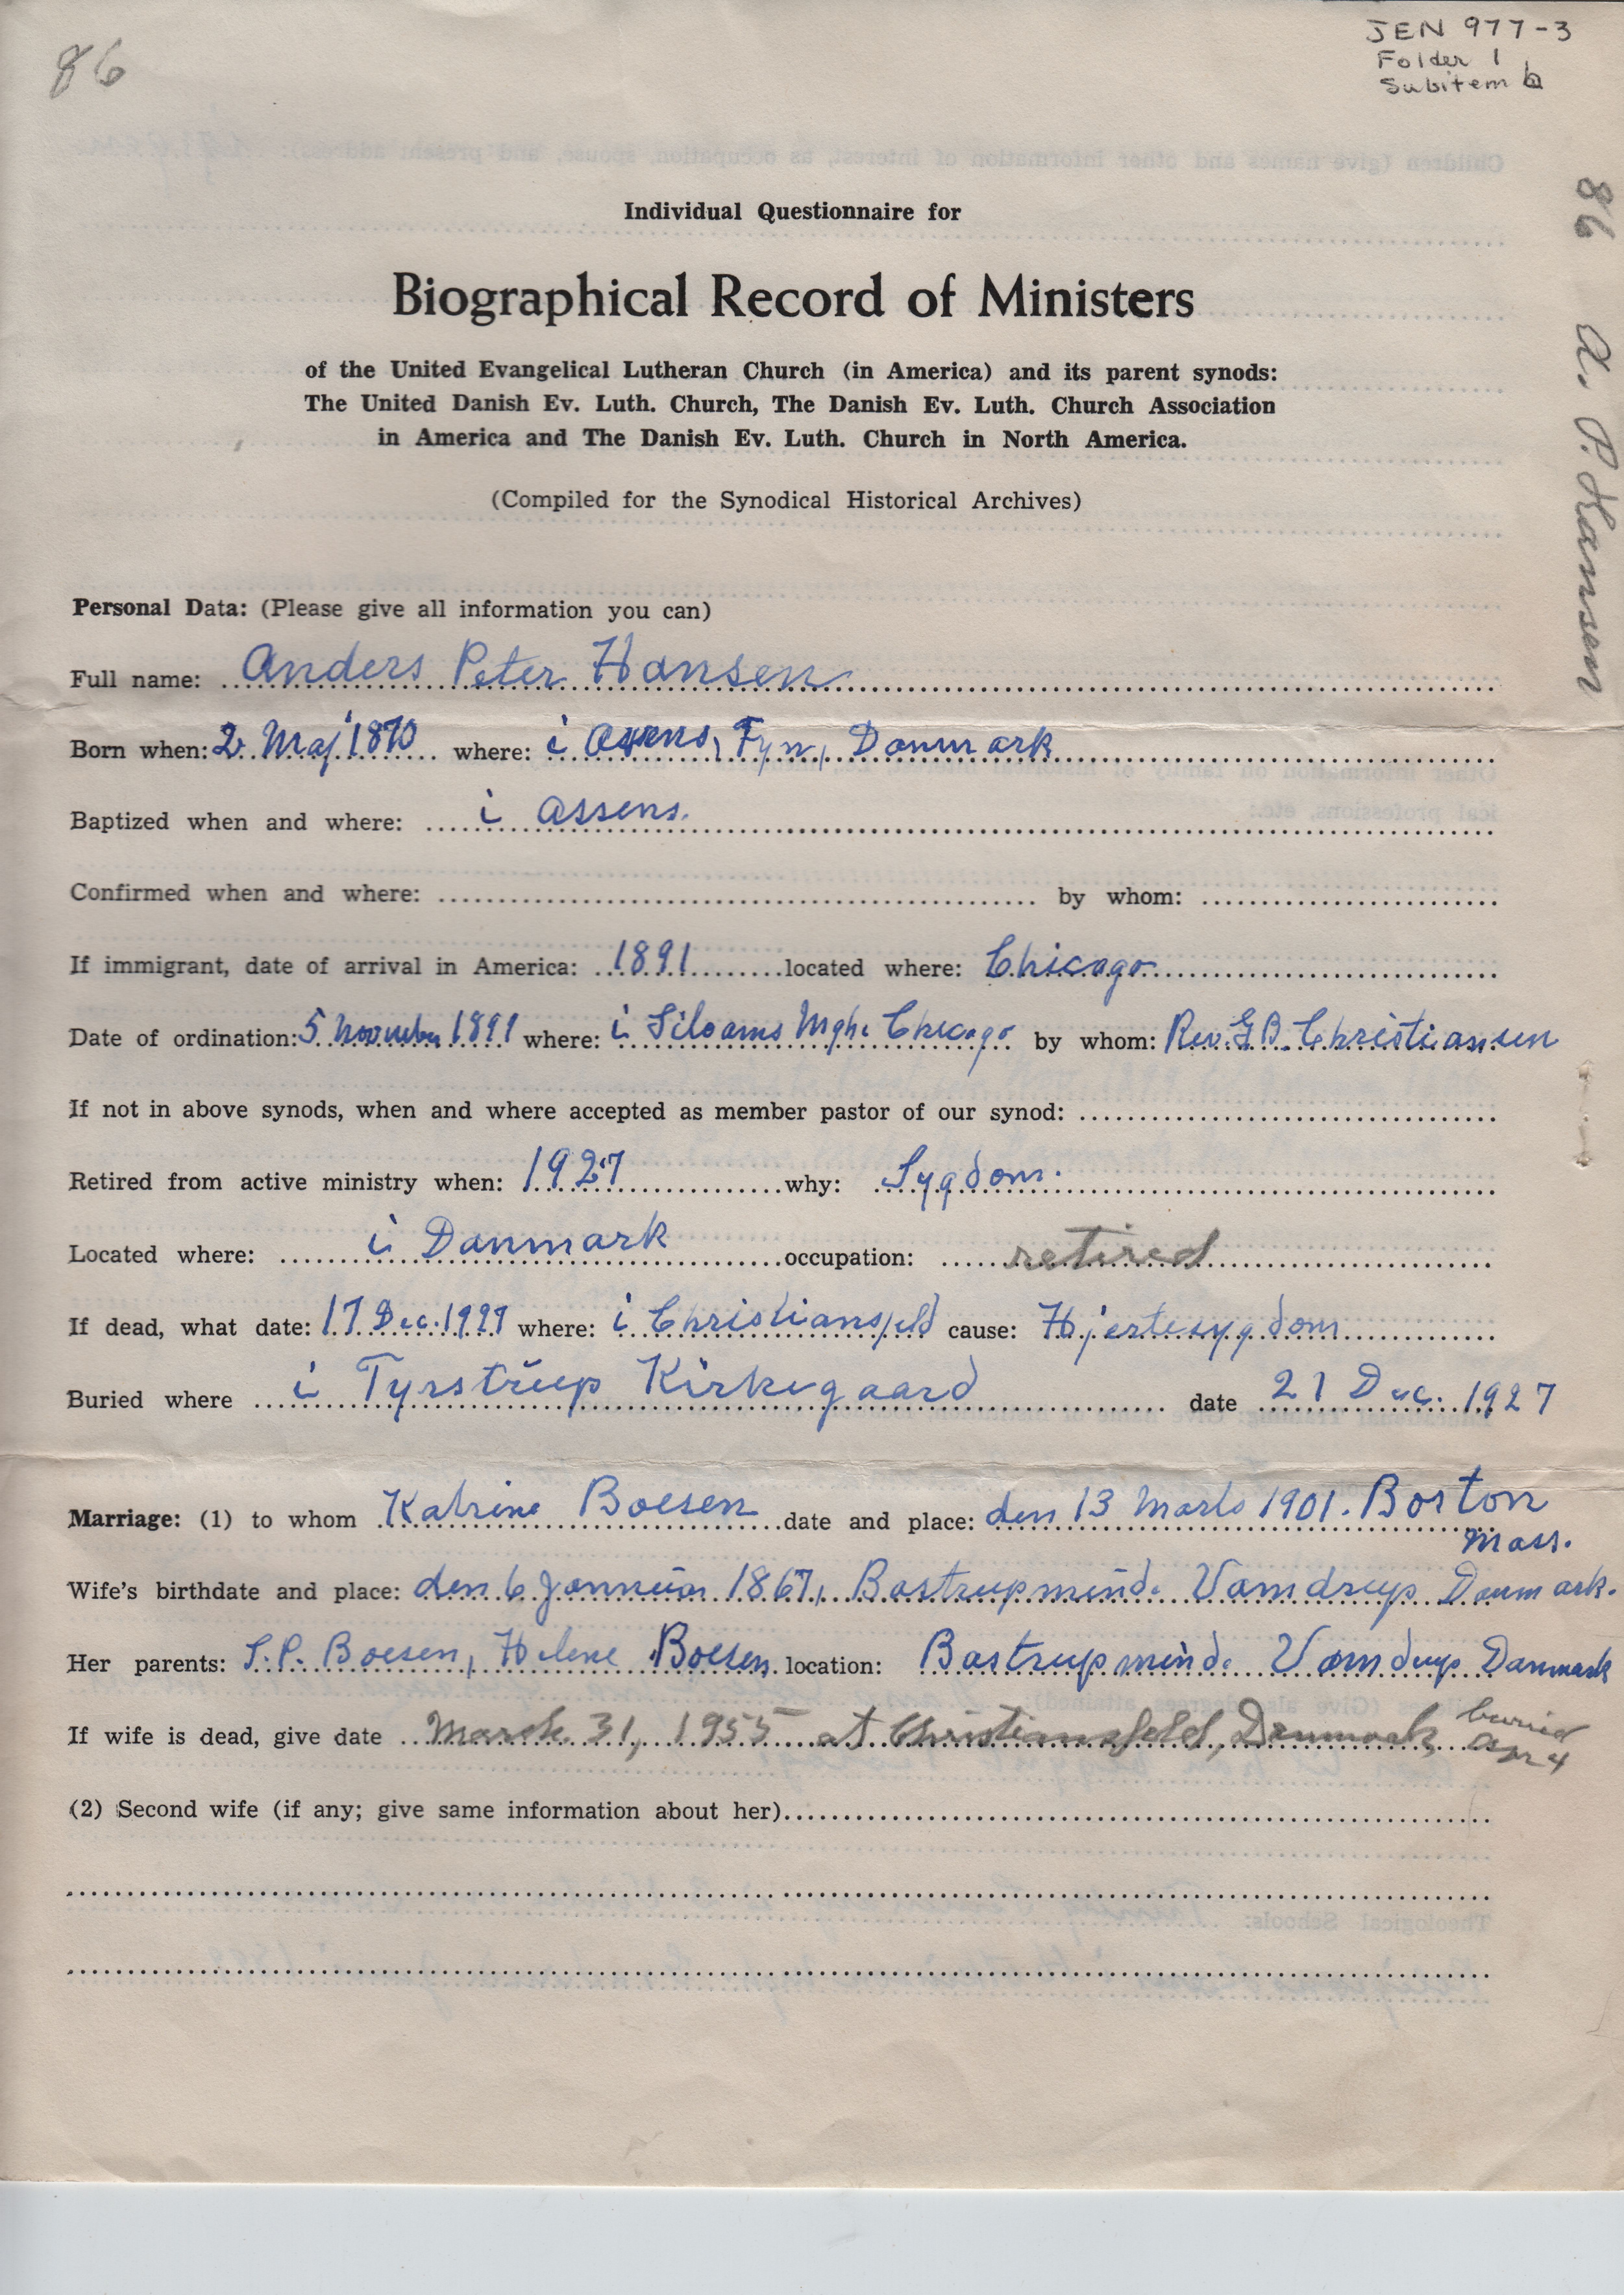 86
JEN 977-3
Folder 1
Subitem b
86 A. P. Hansen
Individual Questionnaire for
Biographical Record of Ministers
of the United Evangelical Lutheran Church (in America) and its parent synods:
The United Danish Ev. Luth. Church, The Danish Ev. Luth. Church Association
in America and The Danish Ev. Luth. Church in North America.
(Compiled for the Synodical Historical Archives)
Personal Data: (Please give all information you can)
Full name: Anders Peter Hansen
Born when: 2. Maj 1870 where: i Assens, Fyn, Danmark
Baptized when and where: i Assens.
Confirmed when and where: by whom:
If immigrant, date of arrival in America: 1891 located where: Chicago
Date of ordination: 5 November 1891 where: i Siloams Mgh. Chicago by whom: Rev. G B. Christiansen
If not in above synods, when and where accepted as member pastor of our synod:
Retired from active ministry when: 1927 why: Sygdom.
Located where: i Danmark occupation: retired
If dead, what date: 17 Dec. 1927 where: i Christiansfeld cause: Hjertesygdom
Buried where i Tyrstrup Kirkegaard date 21 Dec. 1927
Marriage: (1) to whom Katrine Boesen date and place: den 13 Marts 1901. Boston
Mass.
Wife's birthdate and place: den 6 Januar 1867, Bastrupminde Vamdrup Danmark.
Her parents: S. P. Boesen, Helene Boesen location: Bastrupminde Vamdrup Danmark
If wife is dead, give date March 31, 1955 at Christiansfeld, Denmark buried
Apr 4
(2) Second wife (if any; give same information about her)